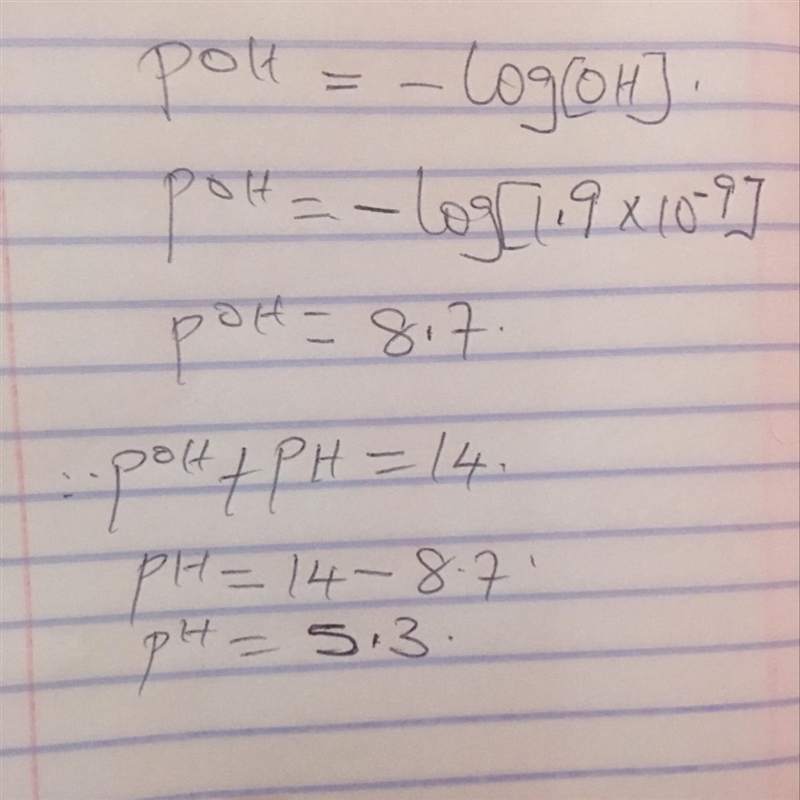 pOH = - log[OH].
pOH = - log[1.9 x 10-9]
pOH = 8.7.
∴ pOH + pH = 14.
pH = 14 - 8.7.
pH = 5.3.